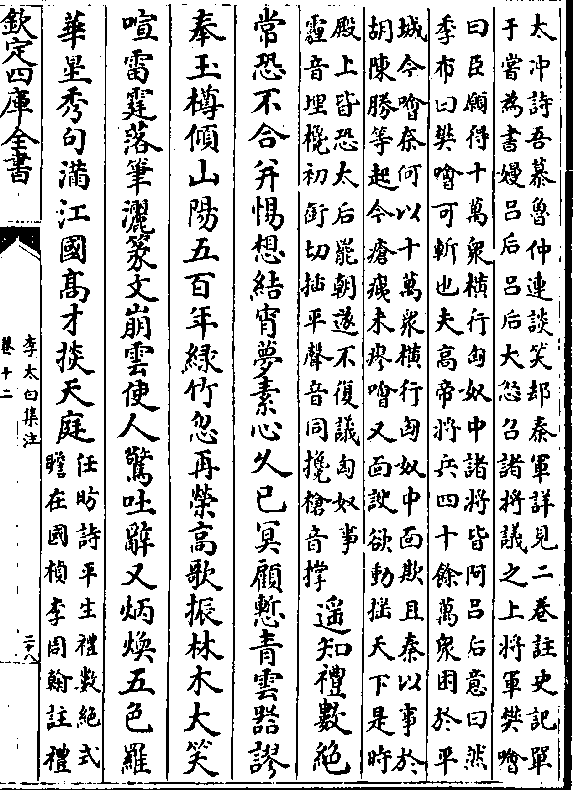 太冲詩吾慕魯仲連談笑却秦軍詳見二卷註史記單
于嘗為書嫚吕后吕后大怒召諸將議之上將軍樊噲
曰臣願得十萬衆横行匈奴中諸將皆阿吕后意曰然
季布曰樊噲可斬也夫高帝將兵四十餘萬衆困於平
城今噲奈何以十萬衆横行匈奴中面欺且秦以事於
胡陳勝等起今瘡痍未瘳噲又面諛欲動摇天下是時
殿上皆恐太后罷朝遂不復議匈奴事
霾音埋欃初銜切揷平聲音同攙槍音撑
遥知禮數絶
常恐不合并惕想結宵夢素心乆已冥顧慙青雲器謬
奉玉樽傾山陽五百年緑竹忽再榮高歌振林木大笑
喧雷霆落筆灑篆文崩雲使人驚吐辭又炳煥五色羅
華星秀句滿江國高才掞天庭
任昉詩平生禮數絶式
瞻在國楨李周翰註禮
欽定四庫全書
李太白集注
卷十二
二十八